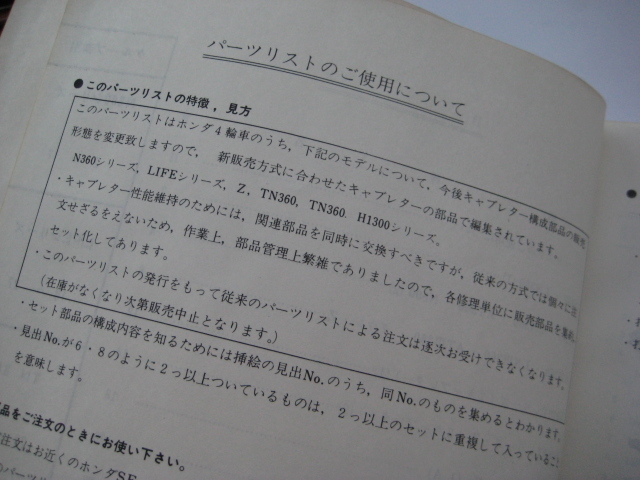 パーツリストのご使用について
●このパーツリストの特徴，見方
このパーツリストはホンダ4輪車のうち，下記のモデルについて，今後キャブレター構成部品の販売
形態を変更致しますので， 新販売方式に合わせたキャブレターの部品で編集されています。
N360シリーズ，LIFEシリーズ，Z，TN360，TN360．H1300シリーズ。
・キャブレター性能維持のためには，関連部品を同時に交換すべきですが，従来の方式では個々に注
文せざるをえないため，作業上，部品管理上繁雑でありましたので，各修理単位に販売部品を集め，
セット化してあります。
・このパーツリストの発行をもって従来のパーツリストによる注文は逐次お受けできなくなります。
（在庫がなくなり次第販売中止となります。）
・セット部品の構成内容を知るためには挿絵の見出No.のうち，同No.のものを集めるとわかります。
・見出No.が6・8のように2っ以上ついているものは，2っ以上のセットに重複して入っていること
を意味します。
品をご注文のときにお使い下さい。
注文はお近くのホンダSF